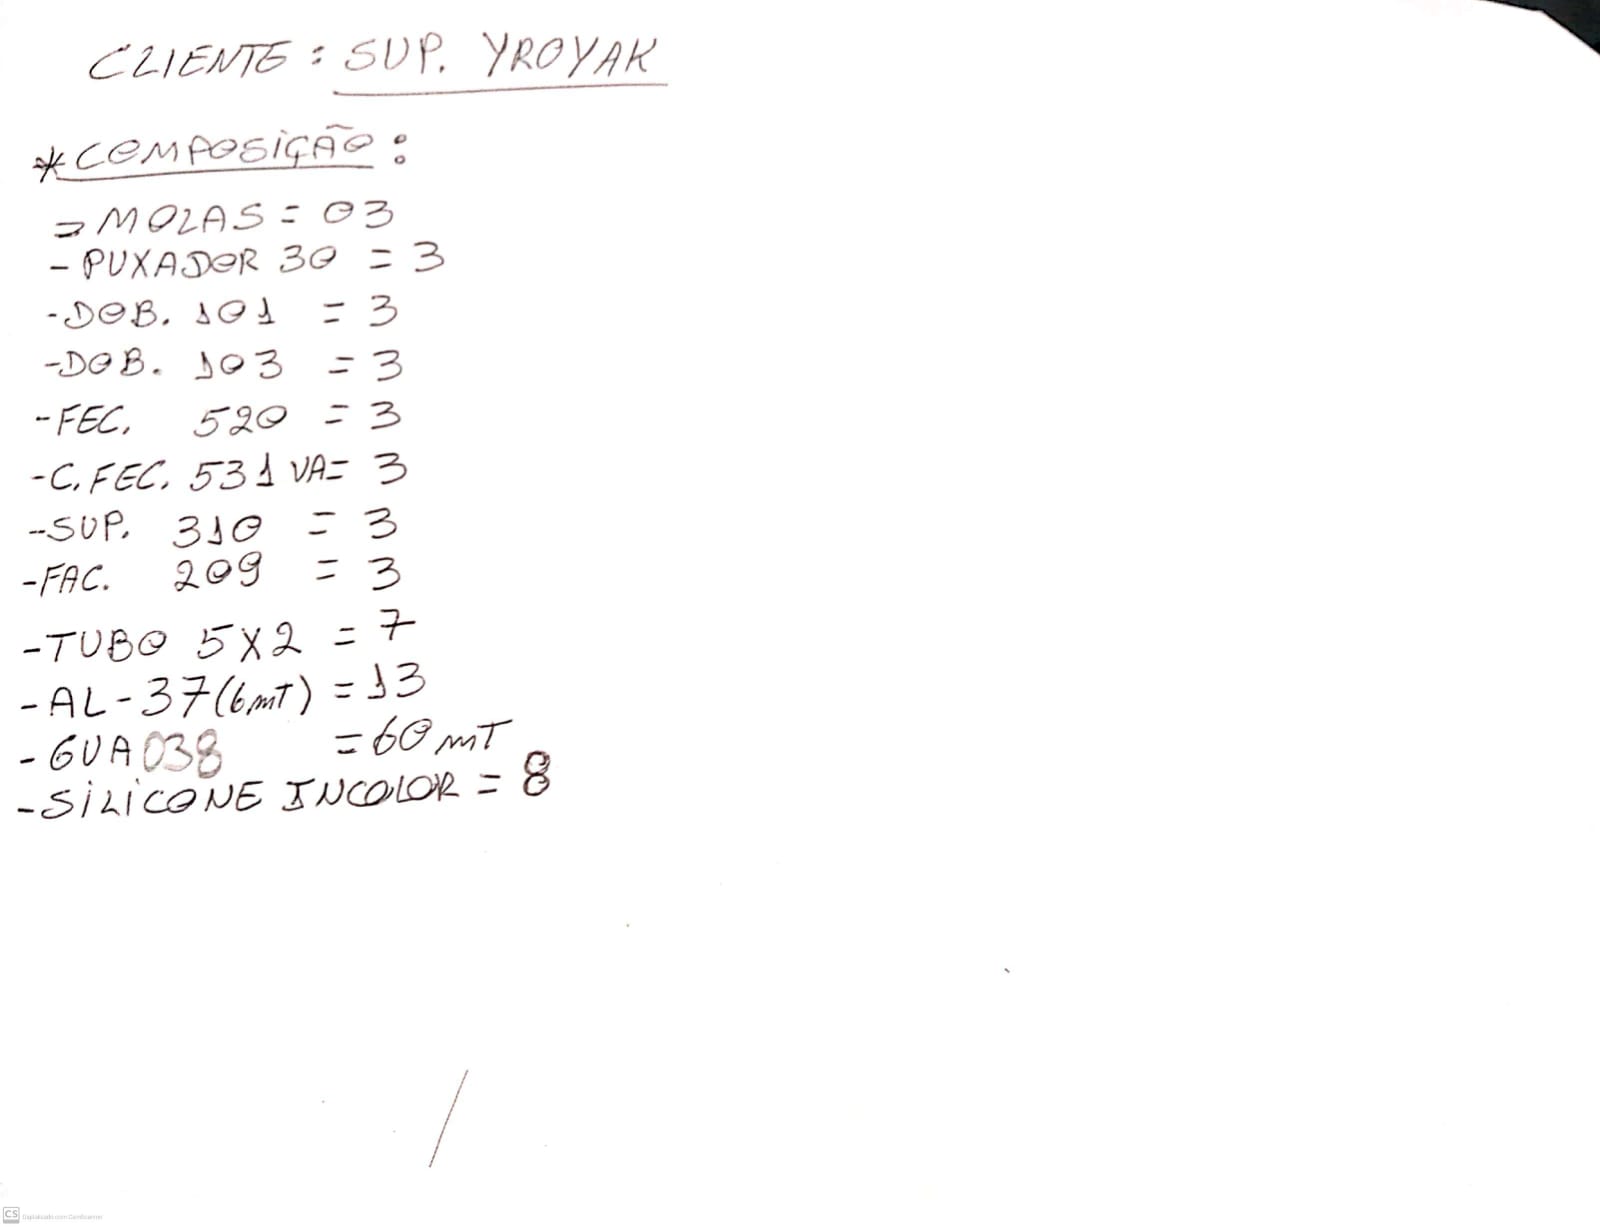 CLIENTE: SUP. YROYAK
*COMPOSIÇÃO:
= MOLAS = 03
- PUXADOR 30 = 3
- DOB. 101 = 3
- DOB. 103 = 3
- FEC. 520 = 3
- C. FEC. 531 VA = 3
- SUP. 310 = 3
- FAC. 209 = 3
- TUBO 5X2 = 7
- AL-37 (6mT) = 13
- GUA 038 = 60 mT
- SILICONE INCOLOR = 8
CS Digitalizado com CamScanner